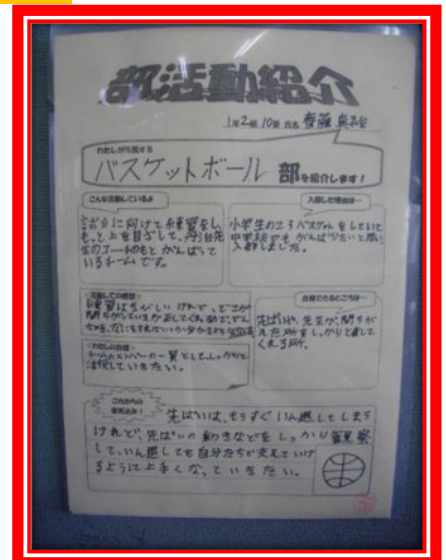 部活動紹介
1年2組10番 氏名
わたしが所属する
バスケットボール 部を紹介します!
こんな活動しているよ
試合に向けて練習をし、
もっと上を目ざして、
生のコーチのもと がんばって
いるチームです。
入部した理由は…
小学生のころバスケットをしていて
中学校でも がんばりたいと思い
入部しました。
練習はきびしいけれど、どこが
間ちがっているか
チームのメンバーの一員としてしっかりと
活やくしていきたい。
自慢できるところは…
先ぱいや、先生が、間ちが
えた所をしっかりと直して
くれる所。
これからの
意気込み!
先ぱいは、もうすぐ いん退してしまう
けれど、先ぱいの動きなどを しっかり観察
して、いん退しても自分たちが支えていけ
るように上手くなっていきたい。